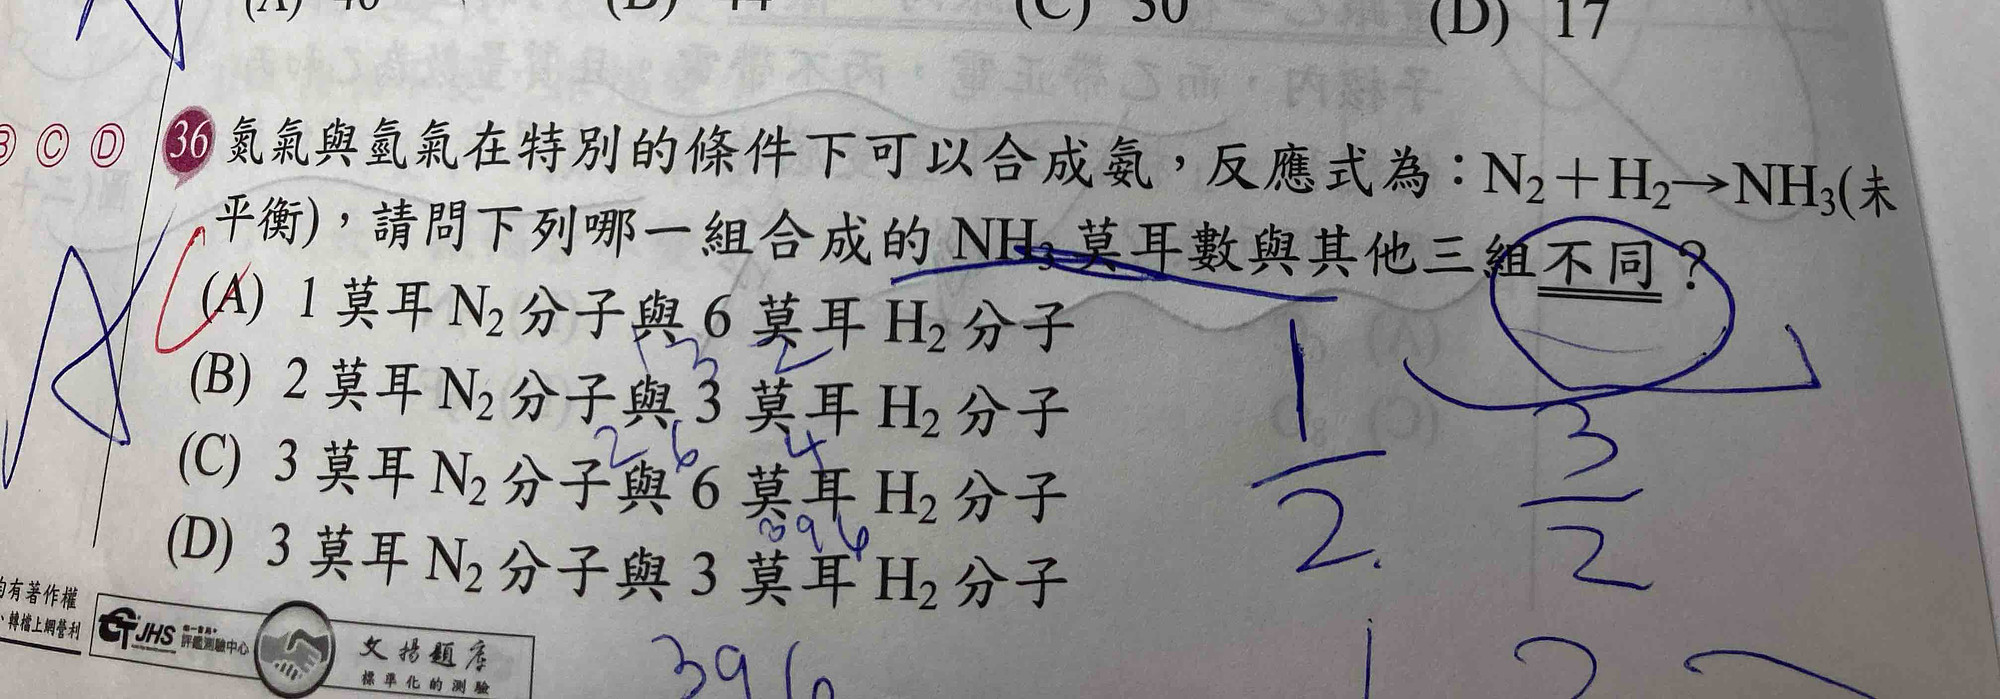 (A) 40 (B) 44 (C) 30 (D) 17
B C D
36 氮氣與氫氣在特別的條件下可以合成氨，反應式為：N₂＋H₂→NH₃(未
平衡)，請問下列哪一組合成的 NH₃ 莫耳數與其他三組不同？
(A) 1 莫耳 N₂ 分子與 6 莫耳 H₂ 分子
1 3 2
(B) 2 莫耳 N₂ 分子與 3 莫耳 H₂ 分子
2 6 4
(C) 3 莫耳 N₂ 分子與 6 莫耳 H₂ 分子
3 9 6
(D) 3 莫耳 N₂ 分子與 3 莫耳 H₂ 分子
1 3
2. 2
有著作權
、轉檔上網營利
JHS 評鑑測驗中心
文揚題庫
標準化的測驗
3 9 6